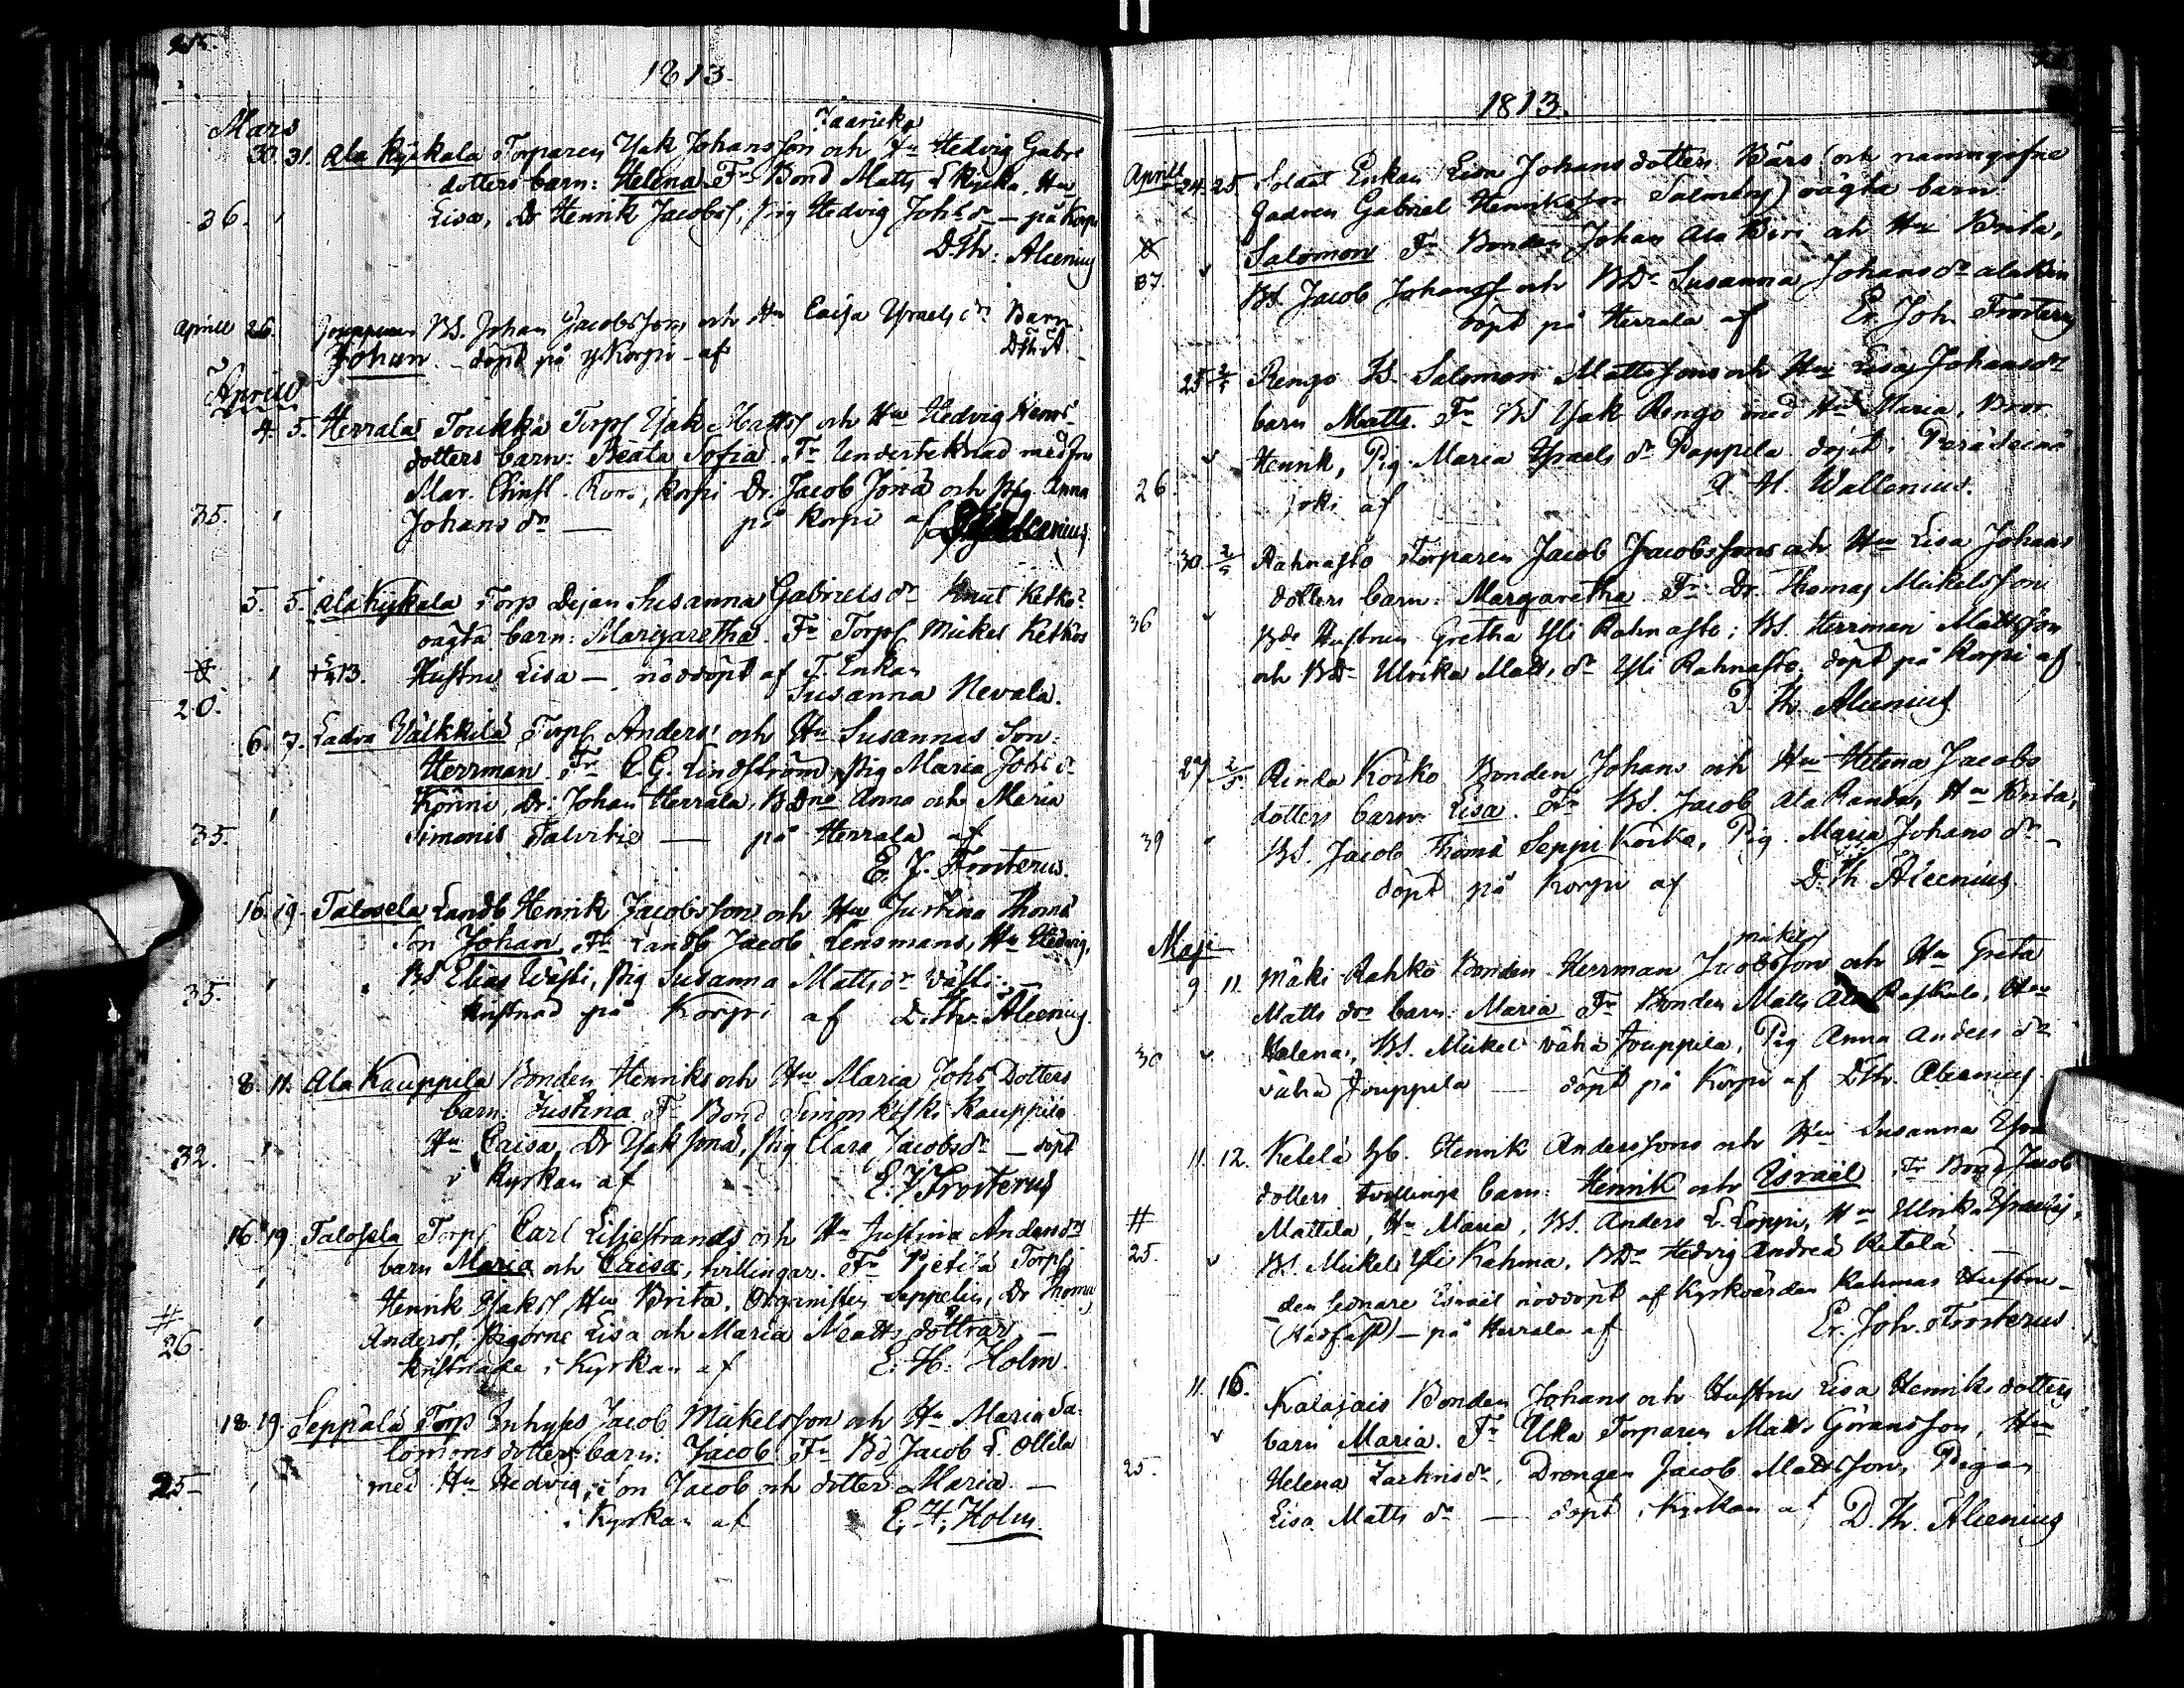 1813.
Mars
30. 31. Ala Kyckala Torparen Isak Johansson och Hu Hedvig Gabr
dotters barn: Helena. Fr Bond Matts L Kycka, Hu
36. Lisa, Dr Henrik Jacobs, Pig Hedvig Joh: dr — på Korpi
D.Th: Alcenius
Aprill 26. Jouppinen BS. Johan Jacobsson och Hu Caisa Israels dr Barn
Johan — döpt på Korpi af D.Th.A.
Aprill
4. 5. Herrala Toukka Torp Isak Matts och Hu Hedvig Henr
dotters barn: Beata Sofia. Fr Undertecknad med
Mar. Korpi Dr. Jacob Jona och Pig Anna
35. Johans dr — på Korpi af
5. 5. Ala Kyckala Torp Dejan Susanna Gabriels dr Knut Ketko
oägta barn: Margaretha. Fr Torp Mickel Ketkos
13. Hustru Lisa — nöddöpt af T. Enkan
20. Susanna Nevala.
6. 7. Ladva Välkkilä Torp Anders och Hu Susannas Son:
Herrman. Fr C. G. Lindström, Pig Maria Johs dr
Könni, Dr: Johan Herrala, Anna och Maria
35. Simonis Talvitie — på Herrala af
E. J. Frosterus.
16. 19. Talosela Landb Henrik Jacobsson och Hu Justina Thoma
Son Johan. Fr Landb Jacob Lensmans, Hu Hedvig,
35. BS Elias Wästi, Pig Susanna Matts dr Wästi —
kristnad på Korpi af D.Th. Alcenius.
8. 11. Ala Kauppila Bonden Henriks och Hu Maria Johs Dotters
barn: Justina Fr Bond Simon Kauppila
32. Hu Caisa, Dr Isak Jona, Pig Clara Jacobs dr — döpt
i Kyrkan af E. J Frosterus
16. 19 Talosela Torp Carl Liljestrands och Hu Justina Anders drs
barn Maria och Caisa, tvillingar. Fr Pjetilä Torp
Henrik Isaks, Hu Brita, Organisten Seppelin, Dr Thomas
# Anders, Pigorne Lisa och Maria Matts döttrar —
26. kristnade i Kyrkan af E. H. Holm.
18. 19. Seppälä Torp Inhyses Jacob Mickelsson och Hu Maria Sa-
lomons dotters barn: Jacob Fr Bd Jacob L. Ollila
25 med Hu Hedvig, Son Jacob och dotter Maria —
i Kyrkan af E. H. Holm.
1813.
Aprill 24. 25. Soldat Enkan Lisa Johans dotters Bärs (och namngifne
fadren Gabriel Henriksson Salmby) oägta barn
Salomon Fr Bonden Johan Ala och Hu Brita,
37. BS. Jacob Johans och BDr Susanna Johans dr
döpt på Herrala af Er. Joh. Frosterus
25 2/5 Rengo BS. Salomon Mattssons och Hu Lisa Johans dr
barn Matts. Fr BS Isak Rengo med Hu Maria, Bror
Henrik, Pig Maria Israels dr Pappila döpt i Peräseinä-
26. joki af A. H. Wallenius.
30 2/5 Rahnasto Torparen Jacob Jacobssons och Hu Lisa Johans
dotters barn: Margaretha. Fr Dr. Thomas Mickelsson
36 Bds Hustrun Gretha Yli Rahnasto; BS. Herrman Mattsson
och BDr Ulrika Matts dr Yli Rahnasto, döpt på Korpi af
D. Th. Alcenius
29 2/5. Rinda Köikö Bonden Johans och Hu Helena Jacobs
dotters barn: Lisa. Fr BS. Jacob Ala Randa, Hu Brita,
39 BS. Jacob Thoma Seppi Koika, Pig. Maria Johans dr —
döpt på Korpi af D. Th. Alcenius.
Maji
9 11. Mäki Rahko Bonden Herrman Jacobsson och Hu Greta
Matts drs barn: Maria Fr Bonden Matts Ala, Hu
30 Helena, BS. Mickel Väha Jouppila, Pig Anna Anders dr
Väha Jouppila — döpt på Korpi af D.Th. Alcenius.
11. 12. Ketelä Henrik Anderssons och Hu Susanna
dotters tvillinge barn: Henrik och Israël. Fr Bond Jacob
# Mattila, Hu Maria, BS. Anders L. Loppi, Hu Ulrika
25. BS. Mickel Yli Rahma, BDr Hedvig Andreä Ketelä —
den senare Israël nöddöpt af Kyrkovärden Rahmas Hustru —
(Stadfäst) — på Herrala af Er. Joh. Frosterus
11. 16. Kalajais Bonden Johans och Hustru Lisa Henriks dotters
barn Maria. Fr Torparen Matts Göransson, Hu
25. Helena dr, Drengen Jacob Mattsson, Pigan
Lisa Matts dr — döpt i Kyrkan af D. Th. Alcenius